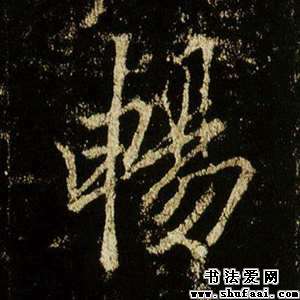 暢
书法爱网
www.shufaai.com